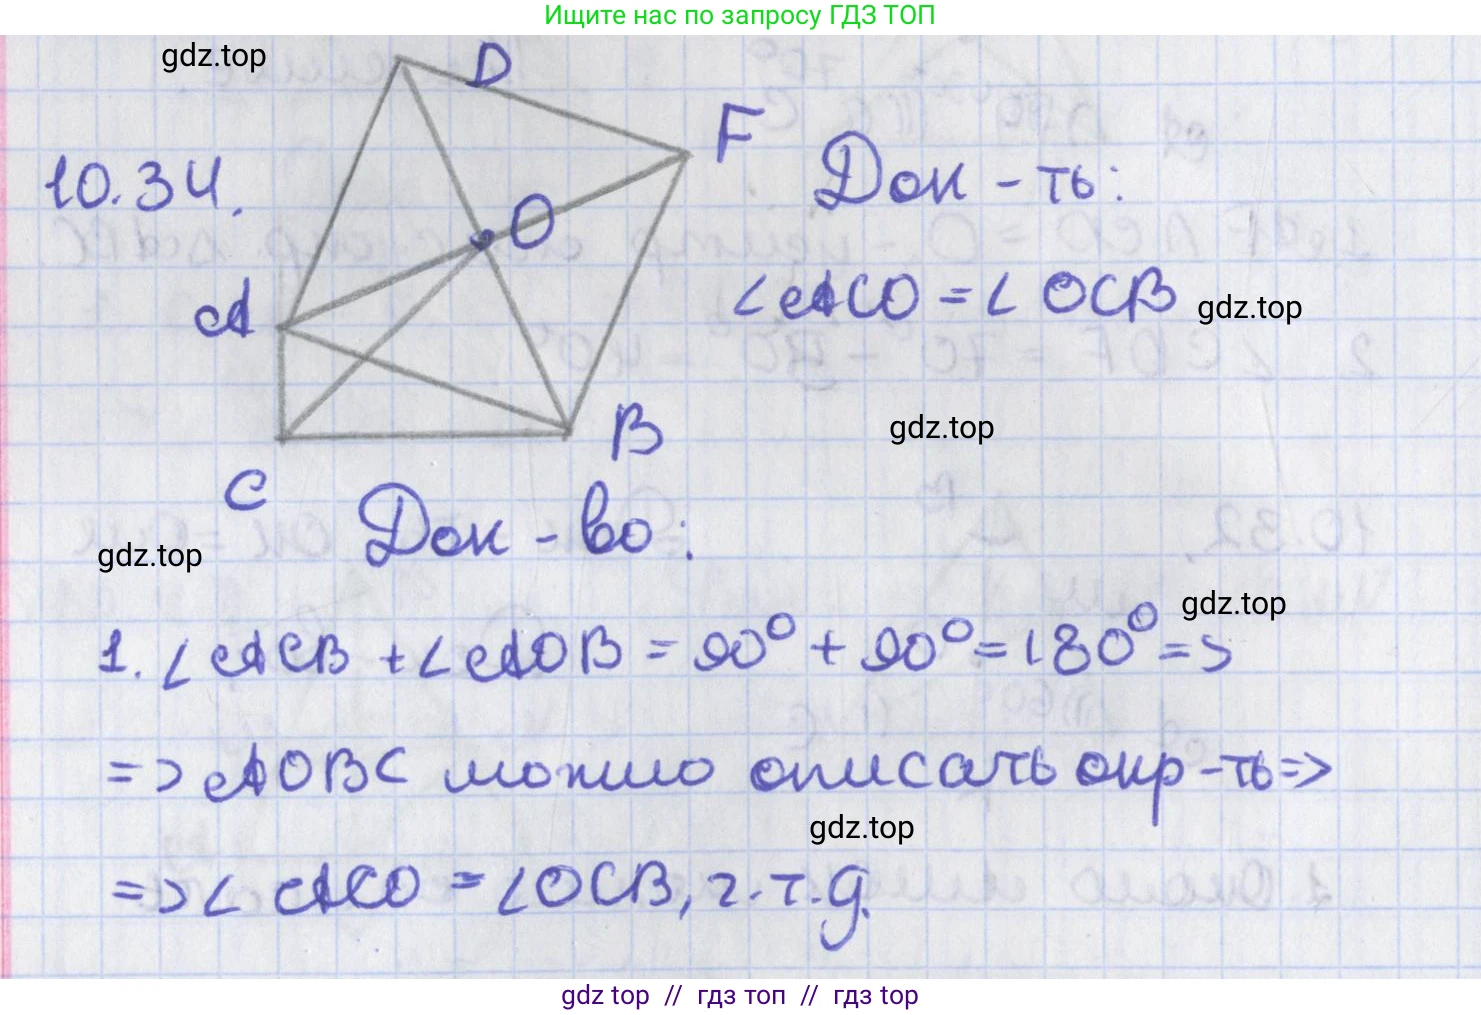 Ищите нас по запросу ГДЗ ТОП
gdz.top
D
10.34.
F
O
Док - ть:
A
∠ACO = ∠OCB
gdz.top
gdz.top
B
C
Док - во:
gdz.top
gdz.top
1. ∠ACB + ∠AOB = 90° + 90° = 180° =>
=> AOBC можно описать окр-ть =>
gdz.top
=> ∠ACO = ∠OCB, ч.т.д.
gdz top // гдз топ // гдз top